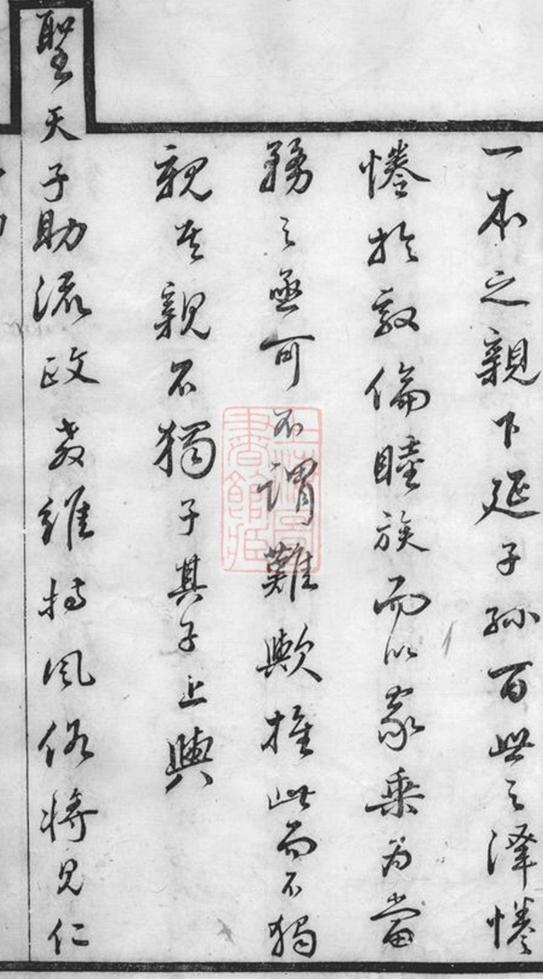 一本之親下延子孫百世之澤惓
惓於敦倫睦族而以家乘為當
務之亟可不謂難歟推此而不獨
親其親不獨子其子上與
聖天子助流政教維持風俗將見仁